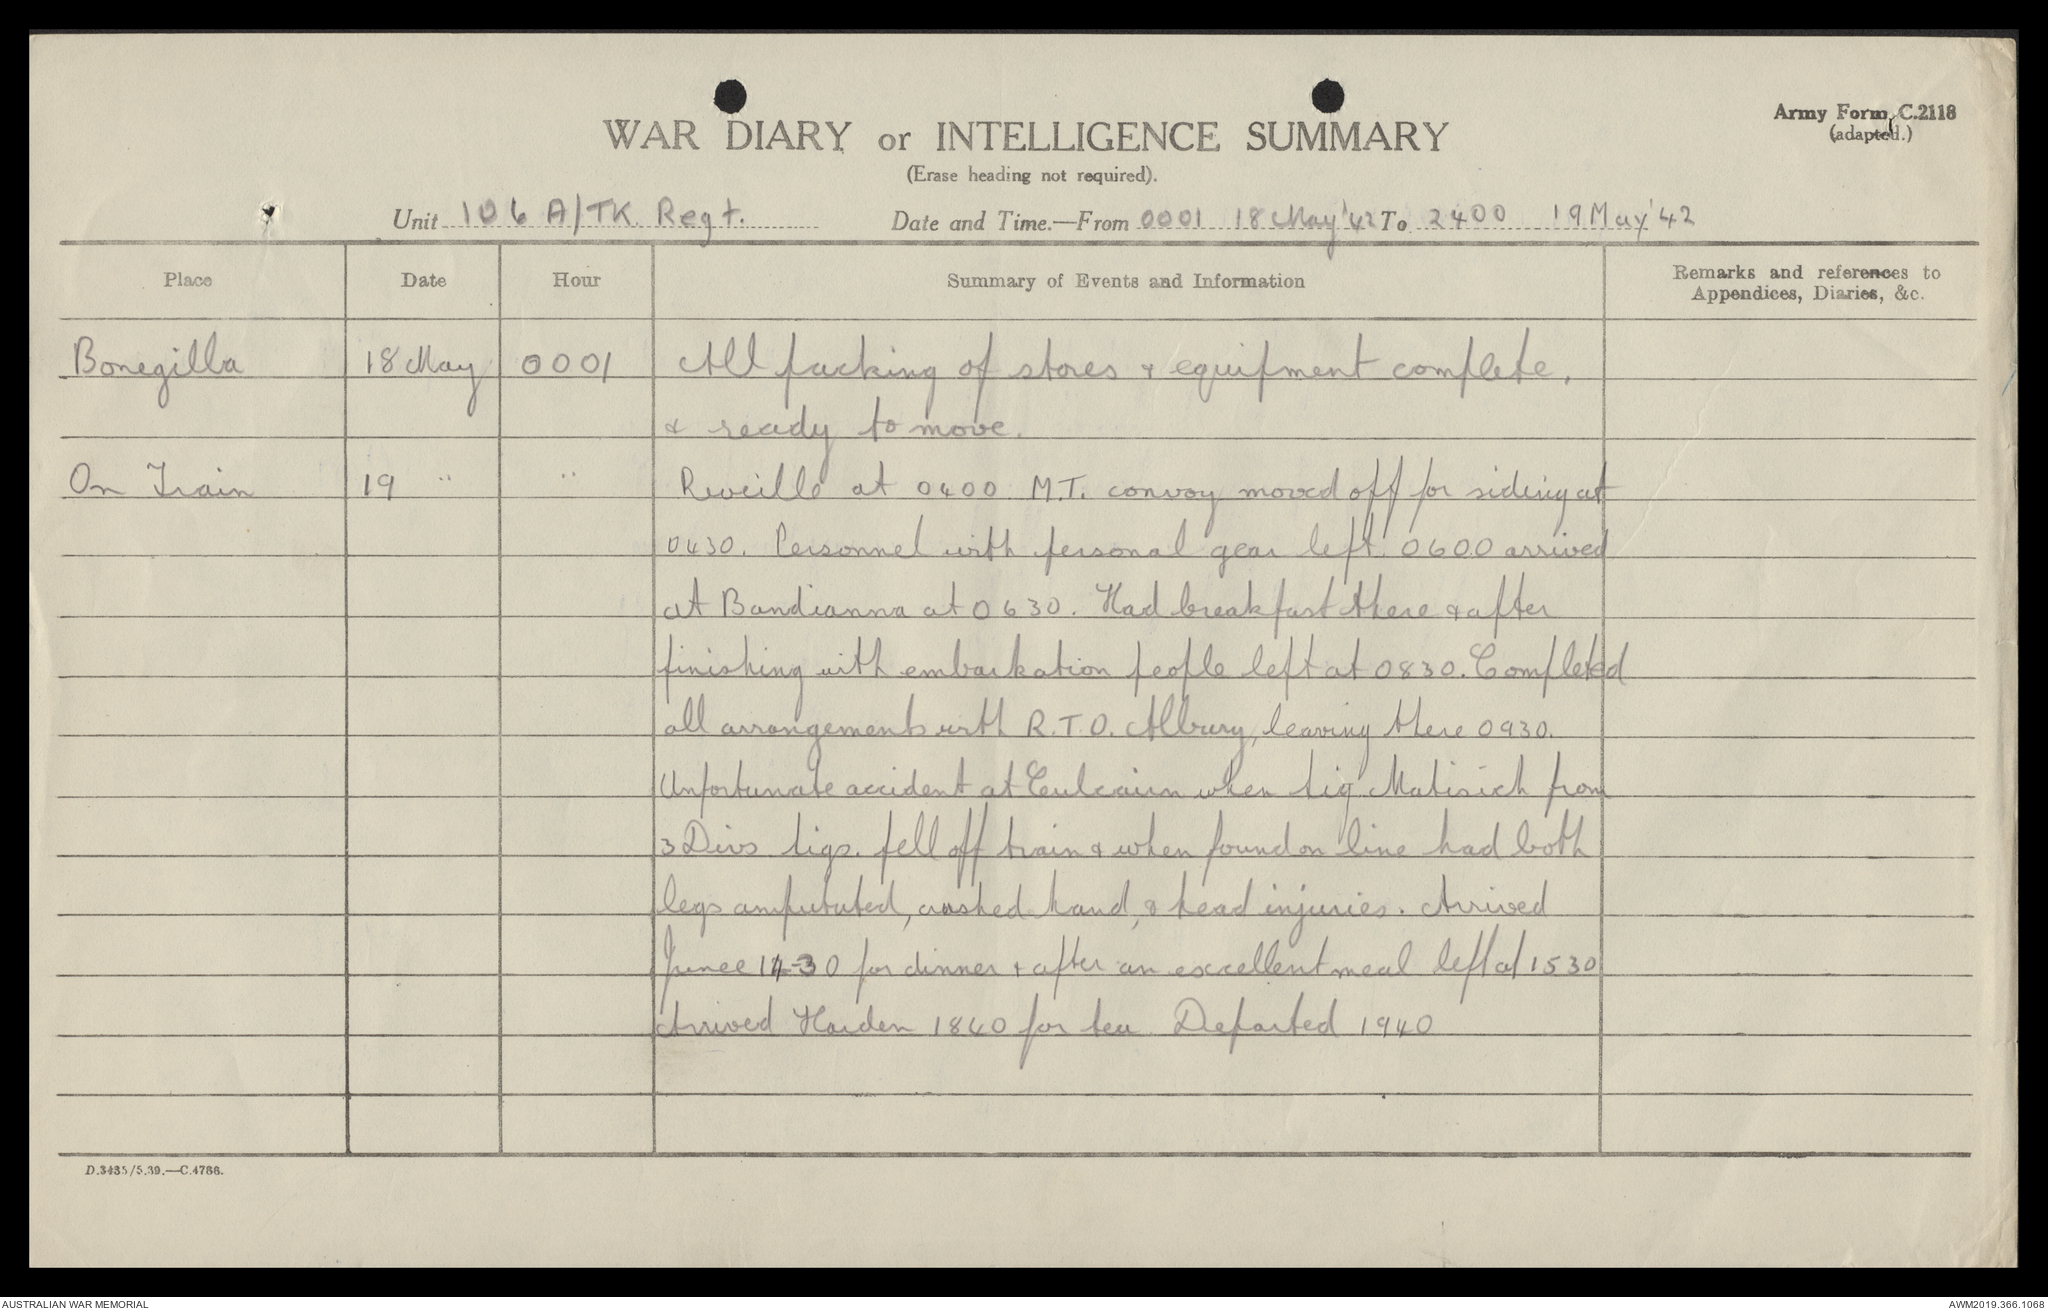 Army Form C.2118
(adapted.)
WAR DIARY or INTELLIGENCE SUMMARY
(Erase heading not required).
Unit 106 A/TK Regt. Date and Time.—From 0001 18 May '42 To 2400 19 May '42
Place Date Hour Summary of Events and Information Remarks and references to Appendices, Diaries, &c.
Bonegilla 18 May 0001 All packing of stores & equipment complete,
& ready to move.
On Train 19 " " Reveille at 0400 M.T. convoy moved off for siding at
0430. Personnel with personal gear left 0600 arrived
at Bandianna at 0630. Had breakfast there & after
finishing with embarkation people left at 0830. Completed
all arrangements with R.T.O. Albury, leaving there 0930.
Unfortunate accident at Culcairn when Sig Matisich from
3 Divs Sigs. fell off train & when found on line had both
legs amputated, crushed hand, & head injuries. Arrived
Junee 1430 for dinner & after an excellent meal left at 1530
Arrived Harden 1840 for tea Departed 1940
D.3435/5.39.—C.4786.
AUSTRALIAN WAR MEMORIAL
AWM2019.366.1068